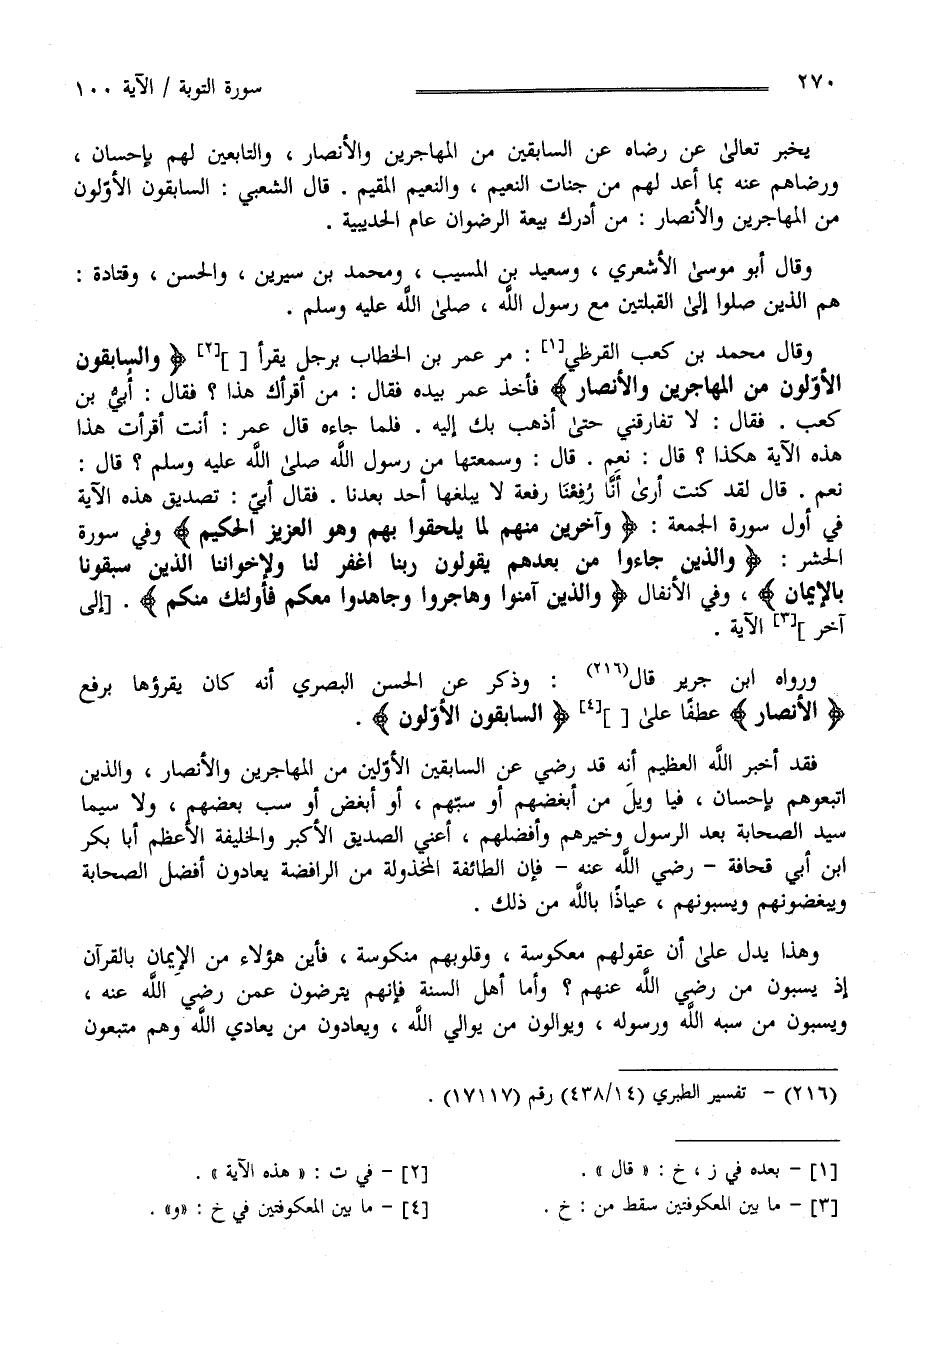 ٢٧٠ سورة التوبة / الآية ١٠٠
يخبر تعالىٰ عن رضاه عن السابقين من المهاجرين والأنصار ، والتابعين لهم بإحسان ،
ورضاهم عنه بما أعد لهم من جنات النعيم ، والنعيم المقيم . قال الشعبي : السابقون الأوّلون
من المهاجرين والأنصار : من أدرك بيعة الرضوان عام الحديبية .
وقال أبو موسىٰ الأشعري ، وسعيد بن المسيب ، ومحمد بن سيرين ، والحسن ، وقتادة :
هم الذين صلوا إلىٰ القبلتين مع رسول اللَّه ، صلىٰ اللَّه عليه وسلم .
وقال محمد بن كعب القرظي[١] : مر عمر بن الخطاب برجل يقرأ [ ][٢] ﴿ والسابقون
الأوّلون من المهاجرين والأنصار ﴾ فأخذ عمر بيده فقال : من أقرأك هذا ؟ فقال : أُبيُّ بن
كعب . فقال : لا تفارقني حتىٰ أذهب بك إليه . فلما جاءه قال عمر : أنت أقرأت هذا
هذه الآية هكذا ؟ قال : نعم . قال : وسمعتها من رسول اللَّه صلىٰ اللَّه عليه وسلم ؟ قال :
نعم . قال لقد كنت أرىٰ أَنَّا رُفِعْنَا رفعة لا يبلغها أحد بعدنا . فقال أبيّ : تصديق هذه الآية
في أول سورة الجمعة : ﴿ وآخرين منهم لما يلحقوا بهم وهو العزيز الحكيم ﴾ وفي سورة
الحشر : ﴿ والذين جاءوا من بعدهم يقولون ربنا اغفر لنا ولإخواننا الذين سبقونا
بالإيمان ﴾ ، وفي الأنفال ﴿ والذين آمنوا وهاجروا وجاهدوا معكم فأولئك منكم ﴾ . [إلى
آخر ][٣] الآية .
ورواه ابن جرير قال(٢١٦) : وذكر عن الحسن البصري أنه كان يقرؤها برفع
﴿ الأنصار ﴾ عطفًا علىٰ [ ][٤] ﴿ السابقون الأوّلون ﴾ .
فقد أخبر اللَّه العظيم أنه قد رضي عن السابقين الأوّلين من المهاجرين والأنصار ، والذين
اتبعوهم بإحسان ، فيا ويلَ من أبغضهم أو سبّهم ، أو أبغض أو سب بعضهم ، ولا سيما
سيد الصحابة بعد الرسول وخيرهم وأفضلهم ، أعني الصديق الأكبر والخليفة الأعظم أبا بكر
ابن أبي قحافة - رضي اللَّه عنه - فإن الطائفة المخذولة من الرافضة يعادون أفضل الصحابة
ويبغضونهم ويسبونهم ، عياذًا باللَّه من ذلك .
وهذا يدل علىٰ أن عقولهم معكوسة ، وقلوبهم منكوسة ، فأين هؤلاء من الإيمان بالقرآن
إذ يسبون من رضي اللَّه عنهم ؟ وأما أهل السنة فإنهم يترضون عمن رضي اللَّه عنه ،
ويسبون من سبه اللَّه ورسوله ، ويوالون من يوالي اللَّه ، ويعادون من يعادي اللَّه وهم متبعون
(٢١٦) - تفسير الطبري (٤٣٨/١٤) رقم (١٧١١٧) .
[١] - بعده في ز ، خ : « قال » . [٢] - في ت : « هذه الآية » .
[٣] - ما بين المعكوفتين سقط من : خ . [٤] - ما بين المعكوفتين في خ : «و» .